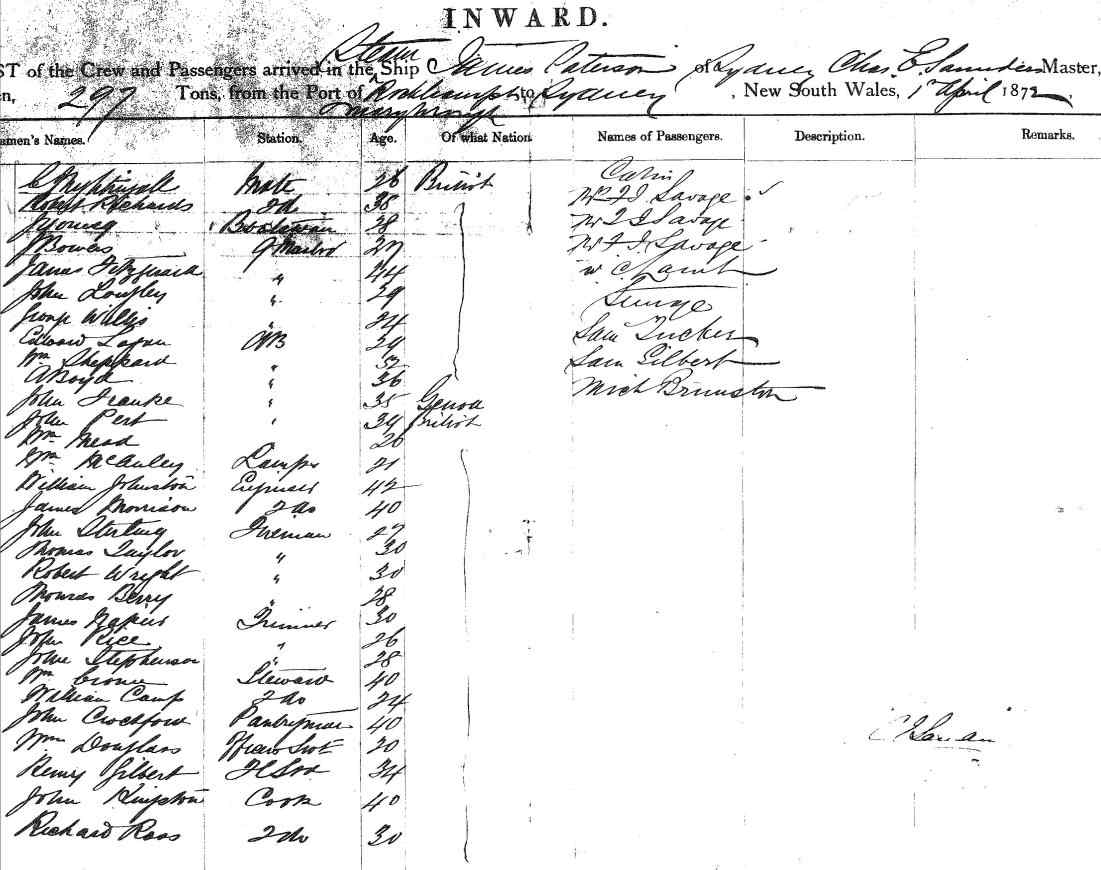 INWARD.
Steam
ST of the Crew and Passengers arrived in the Ship James Paterson of Sydney Chas. E. Saunders Master,
en, 297 Tons, from the Port of Rockhampton to Sydney, New South Wales, 1st April 1872
Maryborough
amen's Names. Station. Age. Of what Nation Names of Passengers. Description. Remarks.
Cabin
C Nightingale Mate 26 British Mr F J Savage
Robert Richards 2d 38 Mr F J Savage
J Young Boatswain 28
J Bowers 27 Savage
James Fitzgerald " 44 W C Lamb
John Langley " 29 Steerage
George Willis " 24 Sam Tucker
Edward Logan AB 29 Sam Gilbert
Wm Sheppard " 32
A Boyd " 36 Mich Brunston
John Franke " 35 Genoa
John Pert " 34 British
Wm Mead 20
Wm McAuley Lamps 21
William Johnston Engineer 42
James Morrison 2 do 40
John Sterling Fireman 27
Thomas Taylor " 30
Robert Wright " 30
Thomas Berry " 28
James Napier Trimmer 30
John Rice " 26
John Stephenson " 28
Wm Steward 40
William Camp 2 do 24
John Crockford Pantryman 40
Wm Douglass 20
Henry Gilbert 34
John Kingston Cook 40
Richard Ross 2 do 30